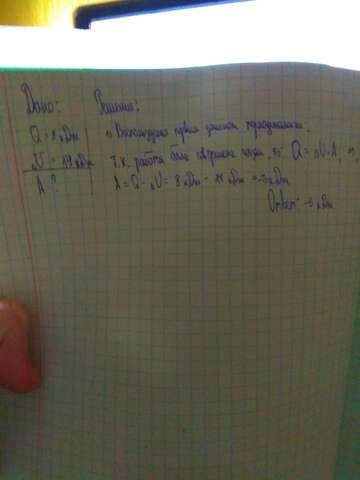 Дано: Решение:
Q = 8 кДж 1) Воспользуемся первым законом термодинамики:
ΔU = 14 кДж Т.к. работа была совершена газом, то: Q = ΔU + A,
A - ? A = Q - ΔU = 8 кДж - 14 кДж = -6 кДж
Ответ: -6 кДж